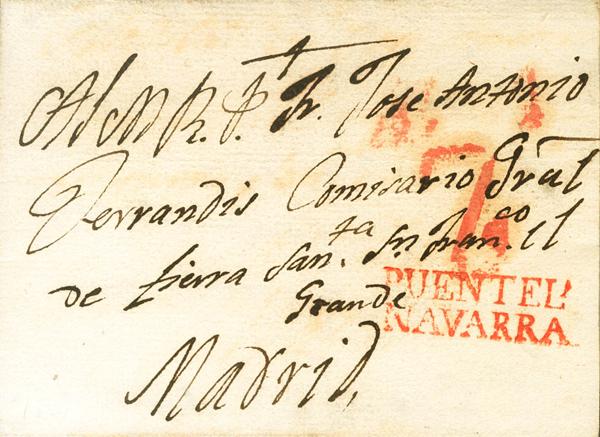 Al M R. P. Fr. Jose Antonio
Ferrandis Comisario Gral
de tierra San.ta Sn. Fran.co el
Grande
Madrid,
7
PUENTEL
NAVARRA